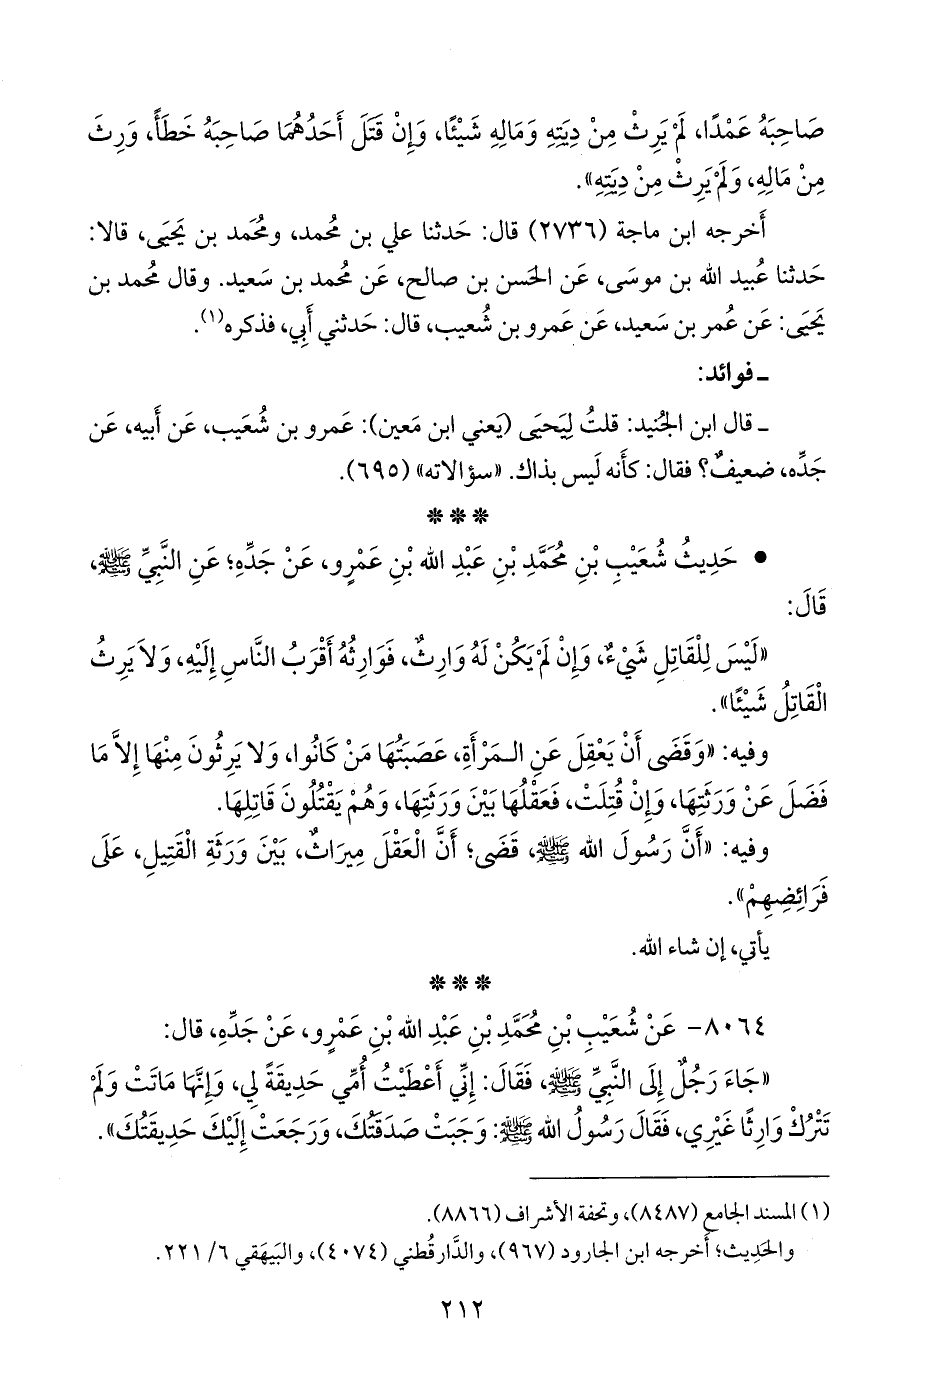 صَاحِبَهُ عَمْدًا، لَمْ يَرِثْ مِنْ دِيَتِهِ وَمَالِهِ شَيْئًا، وَإِنْ قَتَلَ أَحَدُهُمَا صَاحِبَهُ خَطَأً، وَرِثَ
مِنْ مَالِهِ، وَلَمْ يَرِثْ مِنْ دِيَتِهِ».
أَخرجه ابن ماجة (٢٧٣٦) قال: حَدثنا علي بن مُحمد، ومُحَمد بن يَحيَى، قالا:
حَدثنا عُبيد الله بن موسَى، عَن الحَسن بن صالح، عَن مُحمد بن سَعيد. وقال مُحمد بن
يَحيَى: عَن عُمر بن سَعيد، عَن عَمرو بن شُعيب، قال: حَدثني أَبي، فذكره(١).
ـ فوائد:
ـ قال ابن الجُنيد: قلتُ لِيَحيَى (يَعني ابن مَعين): عَمرو بن شُعَيب، عَن أَبيه، عَن
جَدِّه، ضعيفٌ؟ فقال: كأَنه لَيس بذاك. «سؤالاته» (٦٩٥).
❊ ❊ ❊
• حَدِيثُ شُعَيْبِ بْنِ مُحَمَّدِ بْنِ عَبْدِ الله بْنِ عَمْرٍو، عَنْ جَدِّهِ؛ عَنِ النَّبِيِّ ﷺ،
قَالَ:
«لَيْسَ لِلْقَاتِلِ شَيْءٌ، وَإِنْ لَمْ يَكُنْ لَهُ وَارِثٌ، فَوَارِثُهُ أَقْرَبُ النَّاسِ إِلَيْهِ، وَلاَ يَرِثُ
الْقَاتِلُ شَيْئًا».
وفيه: «وَقَضَى أَنْ يَعْقِلَ عَنِ الـمَرْأَةِ، عَصَبَتُهَا مَنْ كَانُوا، وَلا يَرِثُونَ مِنْهَا إِلاَّ مَا
فَضَلَ عَنْ وَرَثَتِهَا، وَإِنْ قُتِلَتْ، فَعَقْلُهَا بَيْنَ وَرَثَتِهَا، وَهُمْ يَقْتُلُونَ قَاتِلِهَا.
وفيه: «أَنَّ رَسُولَ الله ﷺ، قَضَى؛ أَنَّ الْعَقْلَ مِيرَاثٌ، بَيْنَ وَرَثَةِ الْقَتِيلِ، عَلَى
فَرَائِضِهِمْ».
يأتي، إن شاء الله.
❊ ❊ ❊
٨٠٦٤- عَنْ شُعَيْبِ بْنِ مُحَمَّدِ بْنِ عَبْدِ الله بْنِ عَمْرٍو، عَنْ جَدِّهِ، قال:
«جَاءَ رَجُلٌ إِلَى النَّبِيِّ ﷺ، فَقَالَ: إِنِّي أَعْطَيْتُ أُمِّي حَدِيقَةً لِي، وَإِنَّهَا مَاتَتْ وَلَمْ
تَتْرُكْ وَارِثًا غَيْرِي، فَقَالَ رَسُولُ الله ﷺ: وَجَبَتْ صَدَقَتُكَ، وَرَجَعَتْ إِلَيْكَ حَدِيقَتُكَ».
(١) المسند الجامع (٨٤٨٧)، وتحفة الأشراف (٨٨٦٦).
والحَدِيث؛ أَخرجه ابن الجارود (٩٦٧)، والدَّارقُطني (٤٠٧٤)، والبَيهَقي ٦/ ٢٢١.
٢١٢